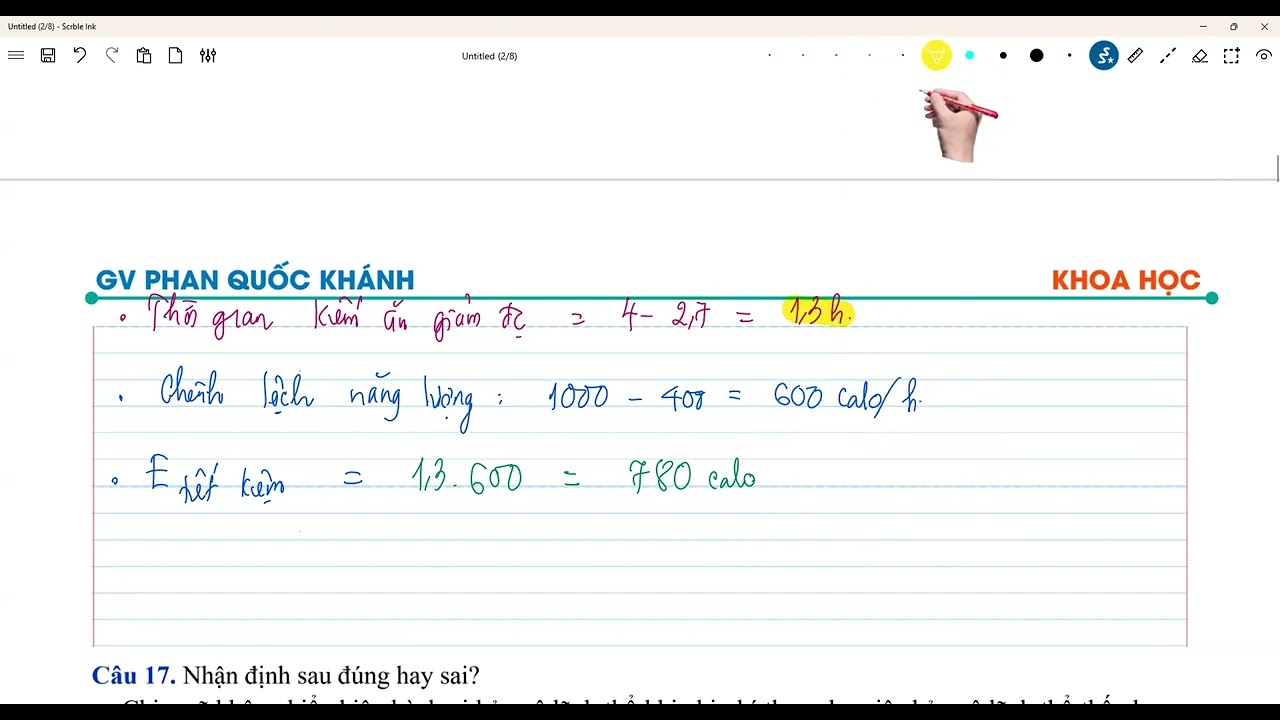 Untitled (2/8) - Scrble Ink
Untitled (2/8)
GV PHAN QUỐC KHÁNH
KHOA HỌC
• Thời gian kiếm ăn giảm đi = 4 - 2,7 = 1,3 h.
• Chênh lệch năng lượng : 1000 - 400 = 600 calo/h.
• E tiết kiệm = 1,3 . 600 = 780 calo
Câu 17. Nhận định sau đúng hay sai?